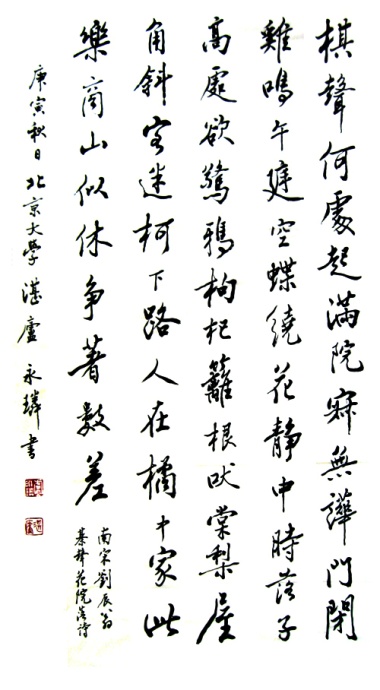 棋聲何處起滿院寂無譁門閉
雞鳴午庭空蝶繞花靜中時落子
高處欲驚鴉枸杞籬根吠棠梨屋
角斜客迷柯下路人在橘中家此
樂商山似休争著數差
南宋劉辰翁
碁聲花院詩
庚寅秋日北京大學湛廬永璘書